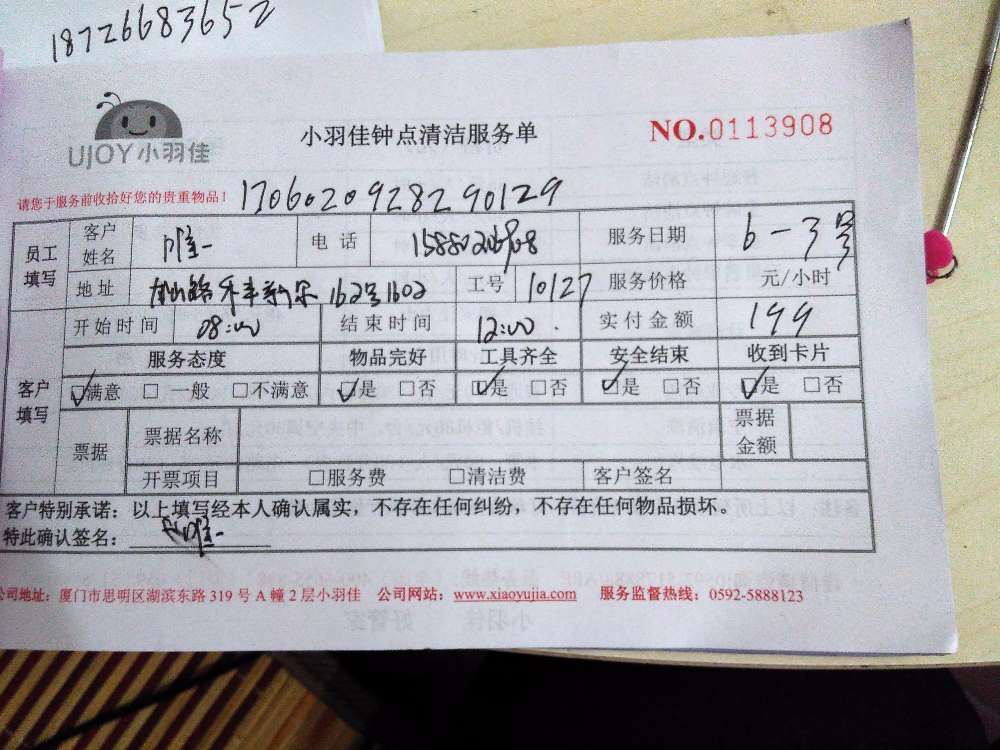 18726683652
UJOY小羽佳
小羽佳钟点清洁服务单
NO.0113908
请您于服务前收拾好您的贵重物品！
170602092829 0129
员工填写
客户姓名
电话
服务日期 6-3号
地址 162号1602
工号 10127
服务价格 元/小时
开始时间 08:00
结束时间 12:00.
实付金额 199
客户填写
服务态度 物品完好 工具齐全 安全结束 收到卡片
☑满意 □一般 □不满意 ☑是 □否 ☑是 □否 ☑是 □否 ☑是 □否
票据 票据名称 票据金额
开票项目 □服务费 □清洁费 客户签名
客户特别承诺：以上填写经本人确认属实，不存在任何纠纷，不存在任何物品损坏。
特此确认签名：
公司地址：厦门市思明区湖滨东路 319 号 A 幢 2 层小羽佳 公司网站：www.xiaoyujia.com 服务监督热线：0592-5888123